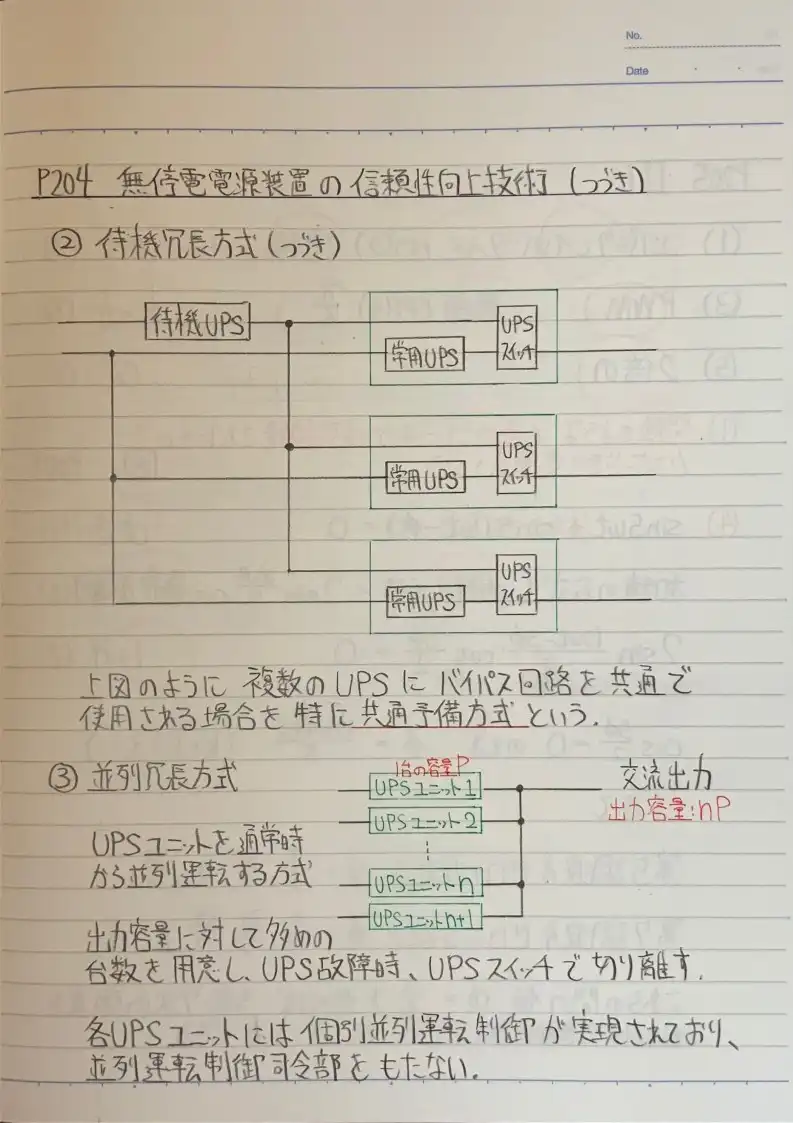 No.
Date
P204 無停電電源装置の信頼性向上技術 (つづき)
② 待機冗長方式(つづき)
待機UPS
UPS
スイッチ
常用UPS
UPS
スイッチ
常用UPS
UPS
スイッチ
常用UPS
上図のように 複数のUPSに バイパス回路を共通で
使用される場合を 特に共通予備方式という.
③ 並列冗長方式
1台の容量P
UPSユニット1
交流出力
出力容量:nP
UPSユニット2
UPSユニットを通常時
から並列運転する方式
UPSユニットn
UPSユニットn+1
出力容量に対して多めの
台数を用意し、UPS故障時、UPSスイッチで切り離す.
各UPSユニットには個別並列運転制御が実現されており、
並列運転制御司令部をもたない.